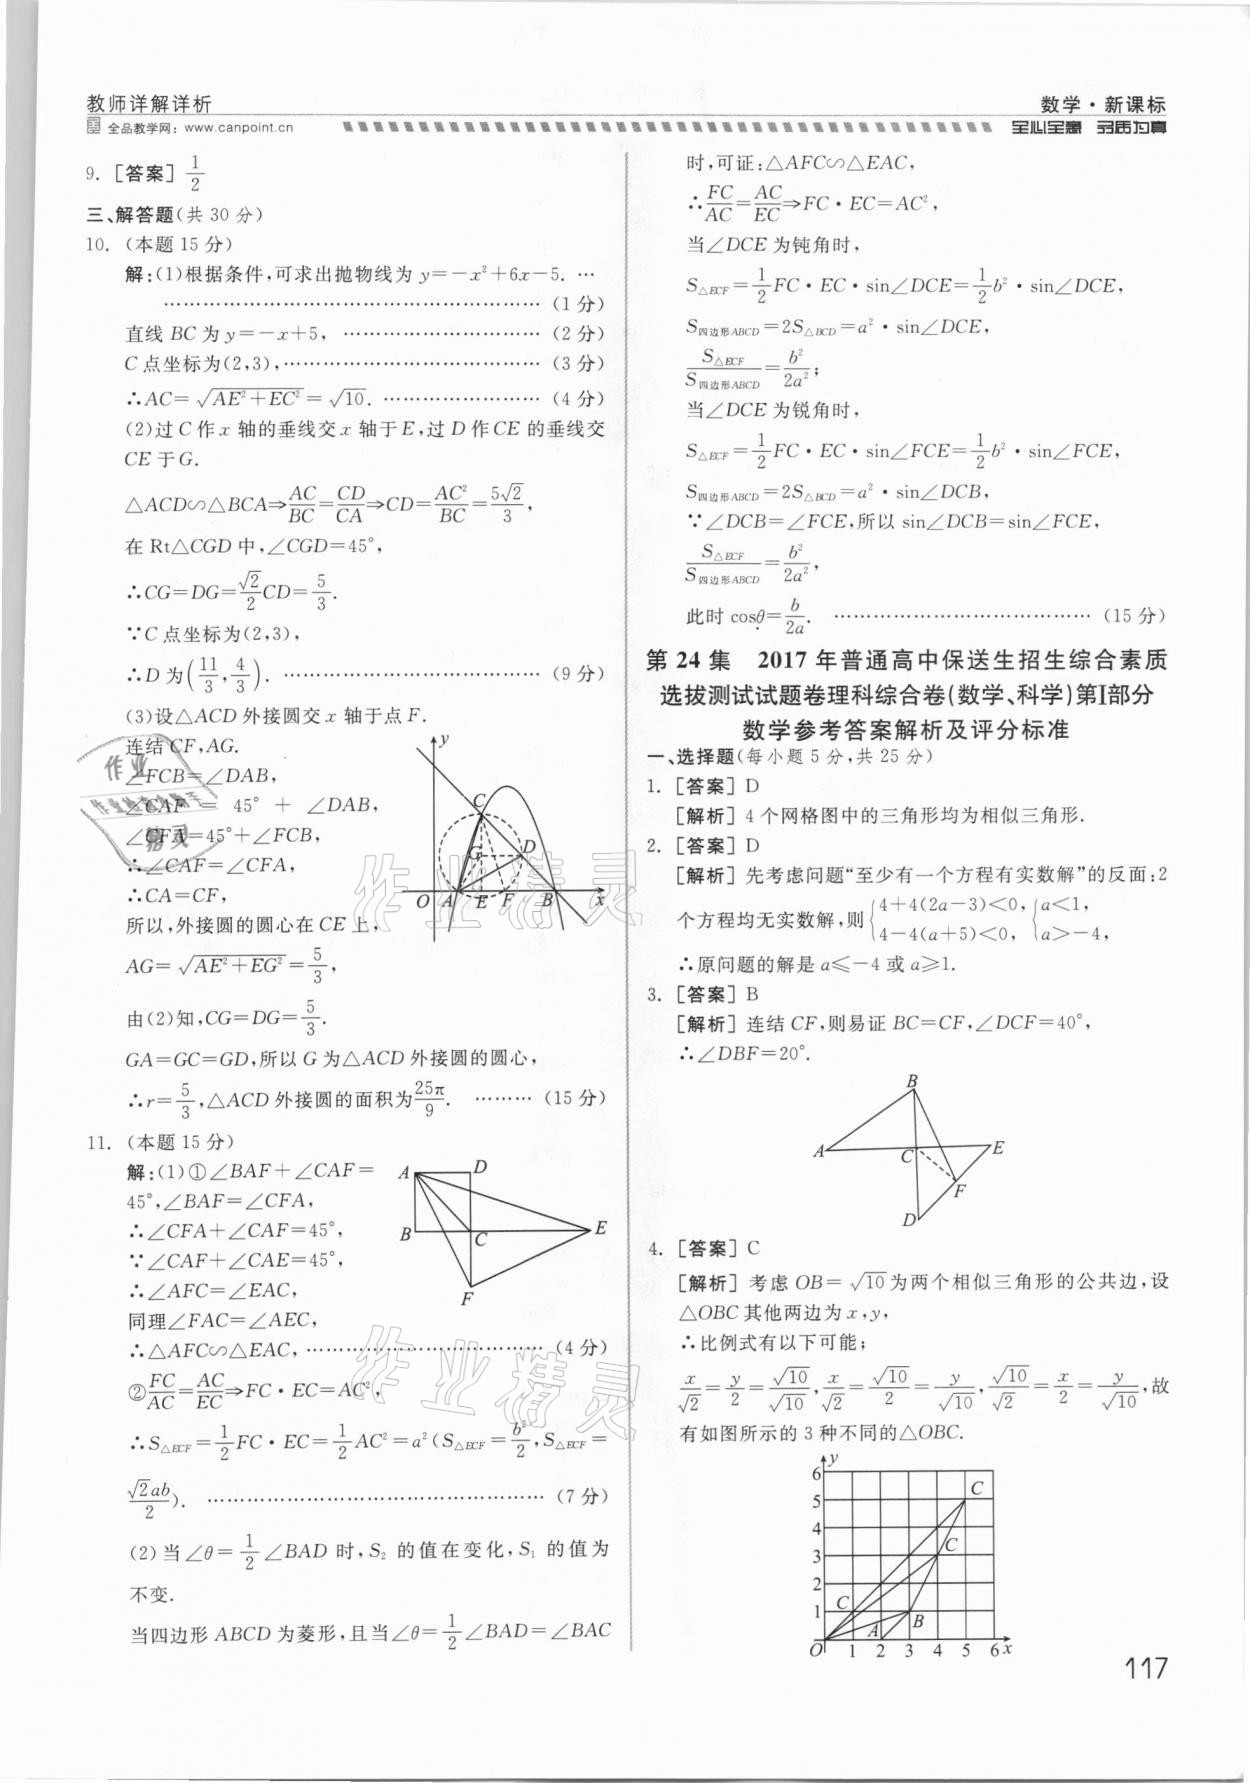 教师详解详析
数学·新课标
全品教学网：www.canpoint.cn
全心全意 品质为真
9. [答案] 1/2
三、解答题(共 30 分)
10. (本题 15 分)
解:(1)根据条件,可求出抛物线为 y=-x²+6x-5. …
…………………………………………… (1 分)
直线 BC 为 y=-x+5, ………………………… (2 分)
C 点坐标为(2,3),………………………………… (3 分)
∴AC=√(AE²+EC²)=√10. …………………… (4 分)
(2)过 C 作 x 轴的垂线交 x 轴于 E,过 D 作 CE 的垂线交
CE 于 G.
△ACD∽△BCA⇒AC/BC=CD/CA⇒CD=AC²/BC=5√2/3,
在 Rt△CGD 中,∠CGD=45°,
∴CG=DG=√2/2CD=5/3.
∵C 点坐标为(2,3),
∴D 为(11/3,4/3). ………………………………… (9 分)
(3)设△ACD 外接圆交 x 轴于点 F.
连结 CF,AG.
∠FCB=∠DAB,
∠CAF = 45° + ∠DAB,
∠CFA=45°+∠FCB,
∴∠CAF=∠CFA,
∴CA=CF,
所以,外接圆的圆心在 CE 上,
AG=√(AE²+EG²)=5/3,
由(2)知,CG=DG=5/3.
GA=GC=GD,所以 G 为△ACD 外接圆的圆心,
∴r=5/3,△ACD 外接圆的面积为25π/9. ……… (15 分)
y
C
G
D
O A E F B x
11. (本题 15 分)
解:(1)①∠BAF+∠CAF=
45°,∠BAF=∠CFA,
∴∠CFA+∠CAF=45°,
∵∠CAF+∠CAE=45°,
∴∠AFC=∠EAC,
同理∠FAC=∠AEC,
∴△AFC∽△EAC,………………………… (4 分)
A D
B C E
F
②FC/AC=AC/EC⇒FC·EC=AC²,
∴S△ECF=1/2FC·EC=1/2AC²=a²(S△ECF=b²/2,S△ECF=
√2ab/2). ……………………………………… (7 分)
(2)当∠θ=1/2∠BAD 时,S₂ 的值在变化,S₁ 的值为
不变.
当四边形 ABCD 为菱形,且当∠θ=1/2∠BAD=∠BAC
时,可证:△AFC∽△EAC,
∴FC/AC=AC/EC⇒FC·EC=AC²,
当∠DCE 为钝角时,
S△ECF=1/2FC·EC·sin∠DCE=1/2b²·sin∠DCE,
S四边形ABCD=2S△BCD=a²·sin∠DCE,
S△ECF/S四边形ABCD=b²/2a²;
当∠DCE 为锐角时,
S△ECF=1/2FC·EC·sin∠FCE=1/2b²·sin∠FCE,
S四边形ABCD=2S△BCD=a²·sin∠DCB,
∵∠DCB=∠FCE,所以 sin∠DCB=sin∠FCE,
S△ECF/S四边形ABCD=b²/2a²,
此时 cosθ=b/2a. ………………………………… (15 分)
第 24 集 2017 年普通高中保送生招生综合素质
选拔测试试题卷理科综合卷(数学、科学)第Ⅰ部分
数学参考答案解析及评分标准
一、选择题(每小题 5 分,共 25 分)
1. [答案] D
[解析] 4 个网格图中的三角形均为相似三角形.
2. [答案] D
[解析] 先考虑问题“至少有一个方程有实数解”的反面:2
个方程均无实数解,则{4+4(2a-3)<0, 4-4(a+5)<0, {a<1, a>-4,
∴原问题的解是 a≤-4 或 a≥1.
3. [答案] B
[解析] 连结 CF,则易证 BC=CF,∠DCF=40°,
∴∠DBF=20°.
B
A C E
F
D
4. [答案] C
[解析] 考虑 OB=√10为两个相似三角形的公共边,设
△OBC 其他两边为 x,y,
∴比例式有以下可能;
x/√2=y/2=√10/√10,x/√2=√10/2=y/√10,√10/√2=x/2=y/√10,故
有如图所示的 3 种不同的△OBC.
y
6
5 C
4
3 C
2
1 C B
O 1 A 2 3 4 5 6 x
117
作业
作业检查小助手
精灵
作业精灵
作业精灵